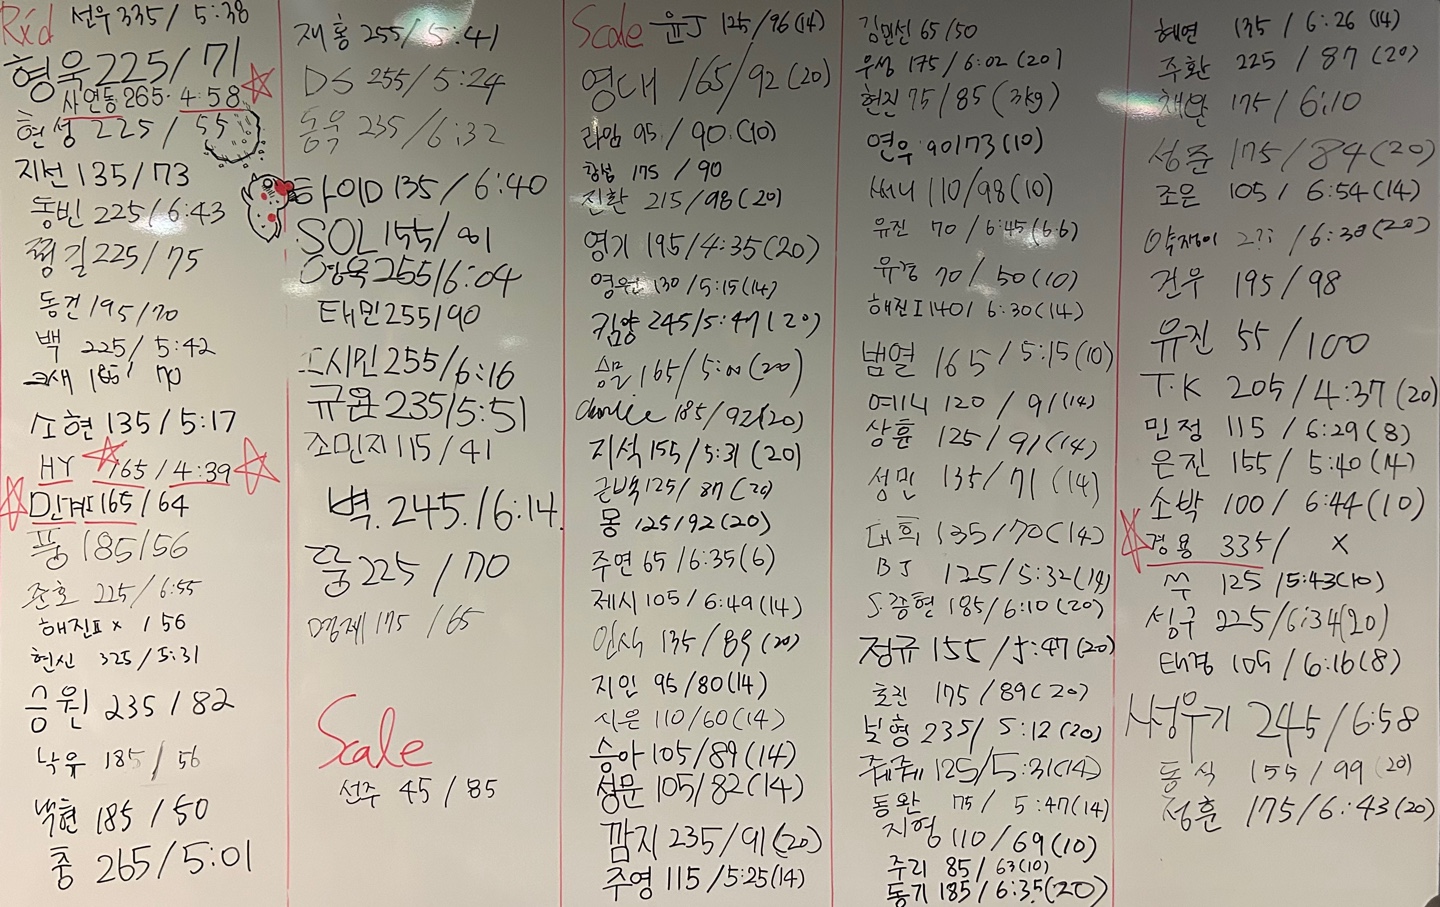 Rx'd 선우 335/ 5:38
형욱 225/ 71
사연동 265. 4:58
현성 225 / 55
지선 135/73
동빈 225/6:43
쩡길 225/ 75
동건 195/70
백 225/ 5:42
185/ 70
소현 135/5:17
HY 165/4:39
민계I 165/64
풍 185/56
준호 225/6:55
해진II x / 56
현신 325/5:31
승원 235/82
낙유 185/ 56
백현 185/50
충 265/5:01
재홍 255/5:41
DS 255/5:24
동욱 235/6:32
타이D 135/6:40
SOL 155/
영욱 255/6:04
태민 255/90
시민 255/6:16
규완 235/5:51
조민지 115/41
벽. 245./6:14.
뚱 225 /70
명제 175 /65
Scale
선주 45/85
Scale 윤J 125/96(14)
영대 165/92(20)
라임 95/ 90.(10)
175 /90
진환 215/98(20)
영기 195/4:35(20)
영원 130/5:15(14)
킴양 245/5:47(20)
승물 165/5:00(20)
choice 185/92(20)
지석 155/5:31(20)
근박 125/ 87(20)
몽 125/92(20)
주연 65/6:35(6)
제시 105/6:49(14)
인식 135/89(20)
지인 95/80(14)
시은 110/60(14)
승아 105/89(14)
성문 105/82(14)
깜지 235/91(20)
주영 115/5:25(14)
김민선 65/50
우성 175/6:02(20)
현진 75/85(3kg)
연우 90/73(10)
써니 110/98(10)
유진 70 /6:45(6.6)
유경 70/50(10)
해진I 140/ 6:30(14)
범열 165/5:15(10)
여니 120 /91(14)
상훈 125/91(14)
성민 135/71(14)
대희 135/70(14)
BJ 125/5:32(14)
S.중현 185/6:10(20)
정규 155/5:47(20)
효진 175/89(20)
보형 235/ 5:12(20)
쥬쥬 125/5:31(14)
동완 75/ 5:47(14)
지형 110/69(10)
주리 85/63(10)
동기 185/6:35(20)
혜연 135/6:26(14)
주환 225 /87(20)
채완 175/6:10
성준 175/84(20)
조은 105/ 6:54(14)
약쟁이 2?? /6:38(20)
건우 195/98
유진 55/100
T.K 205/4:37(20)
민정 115 /6:29(8)
은진 155/ 5:40(14)
소박 100/ 6:44(10)
경용 335/ x
M 125/5:43(10)
성구 225/6:34(20)
태경 105/6:16(8)
사성우기 245/6:58
동식 155/99(20)
정훈 175/6:43(20)